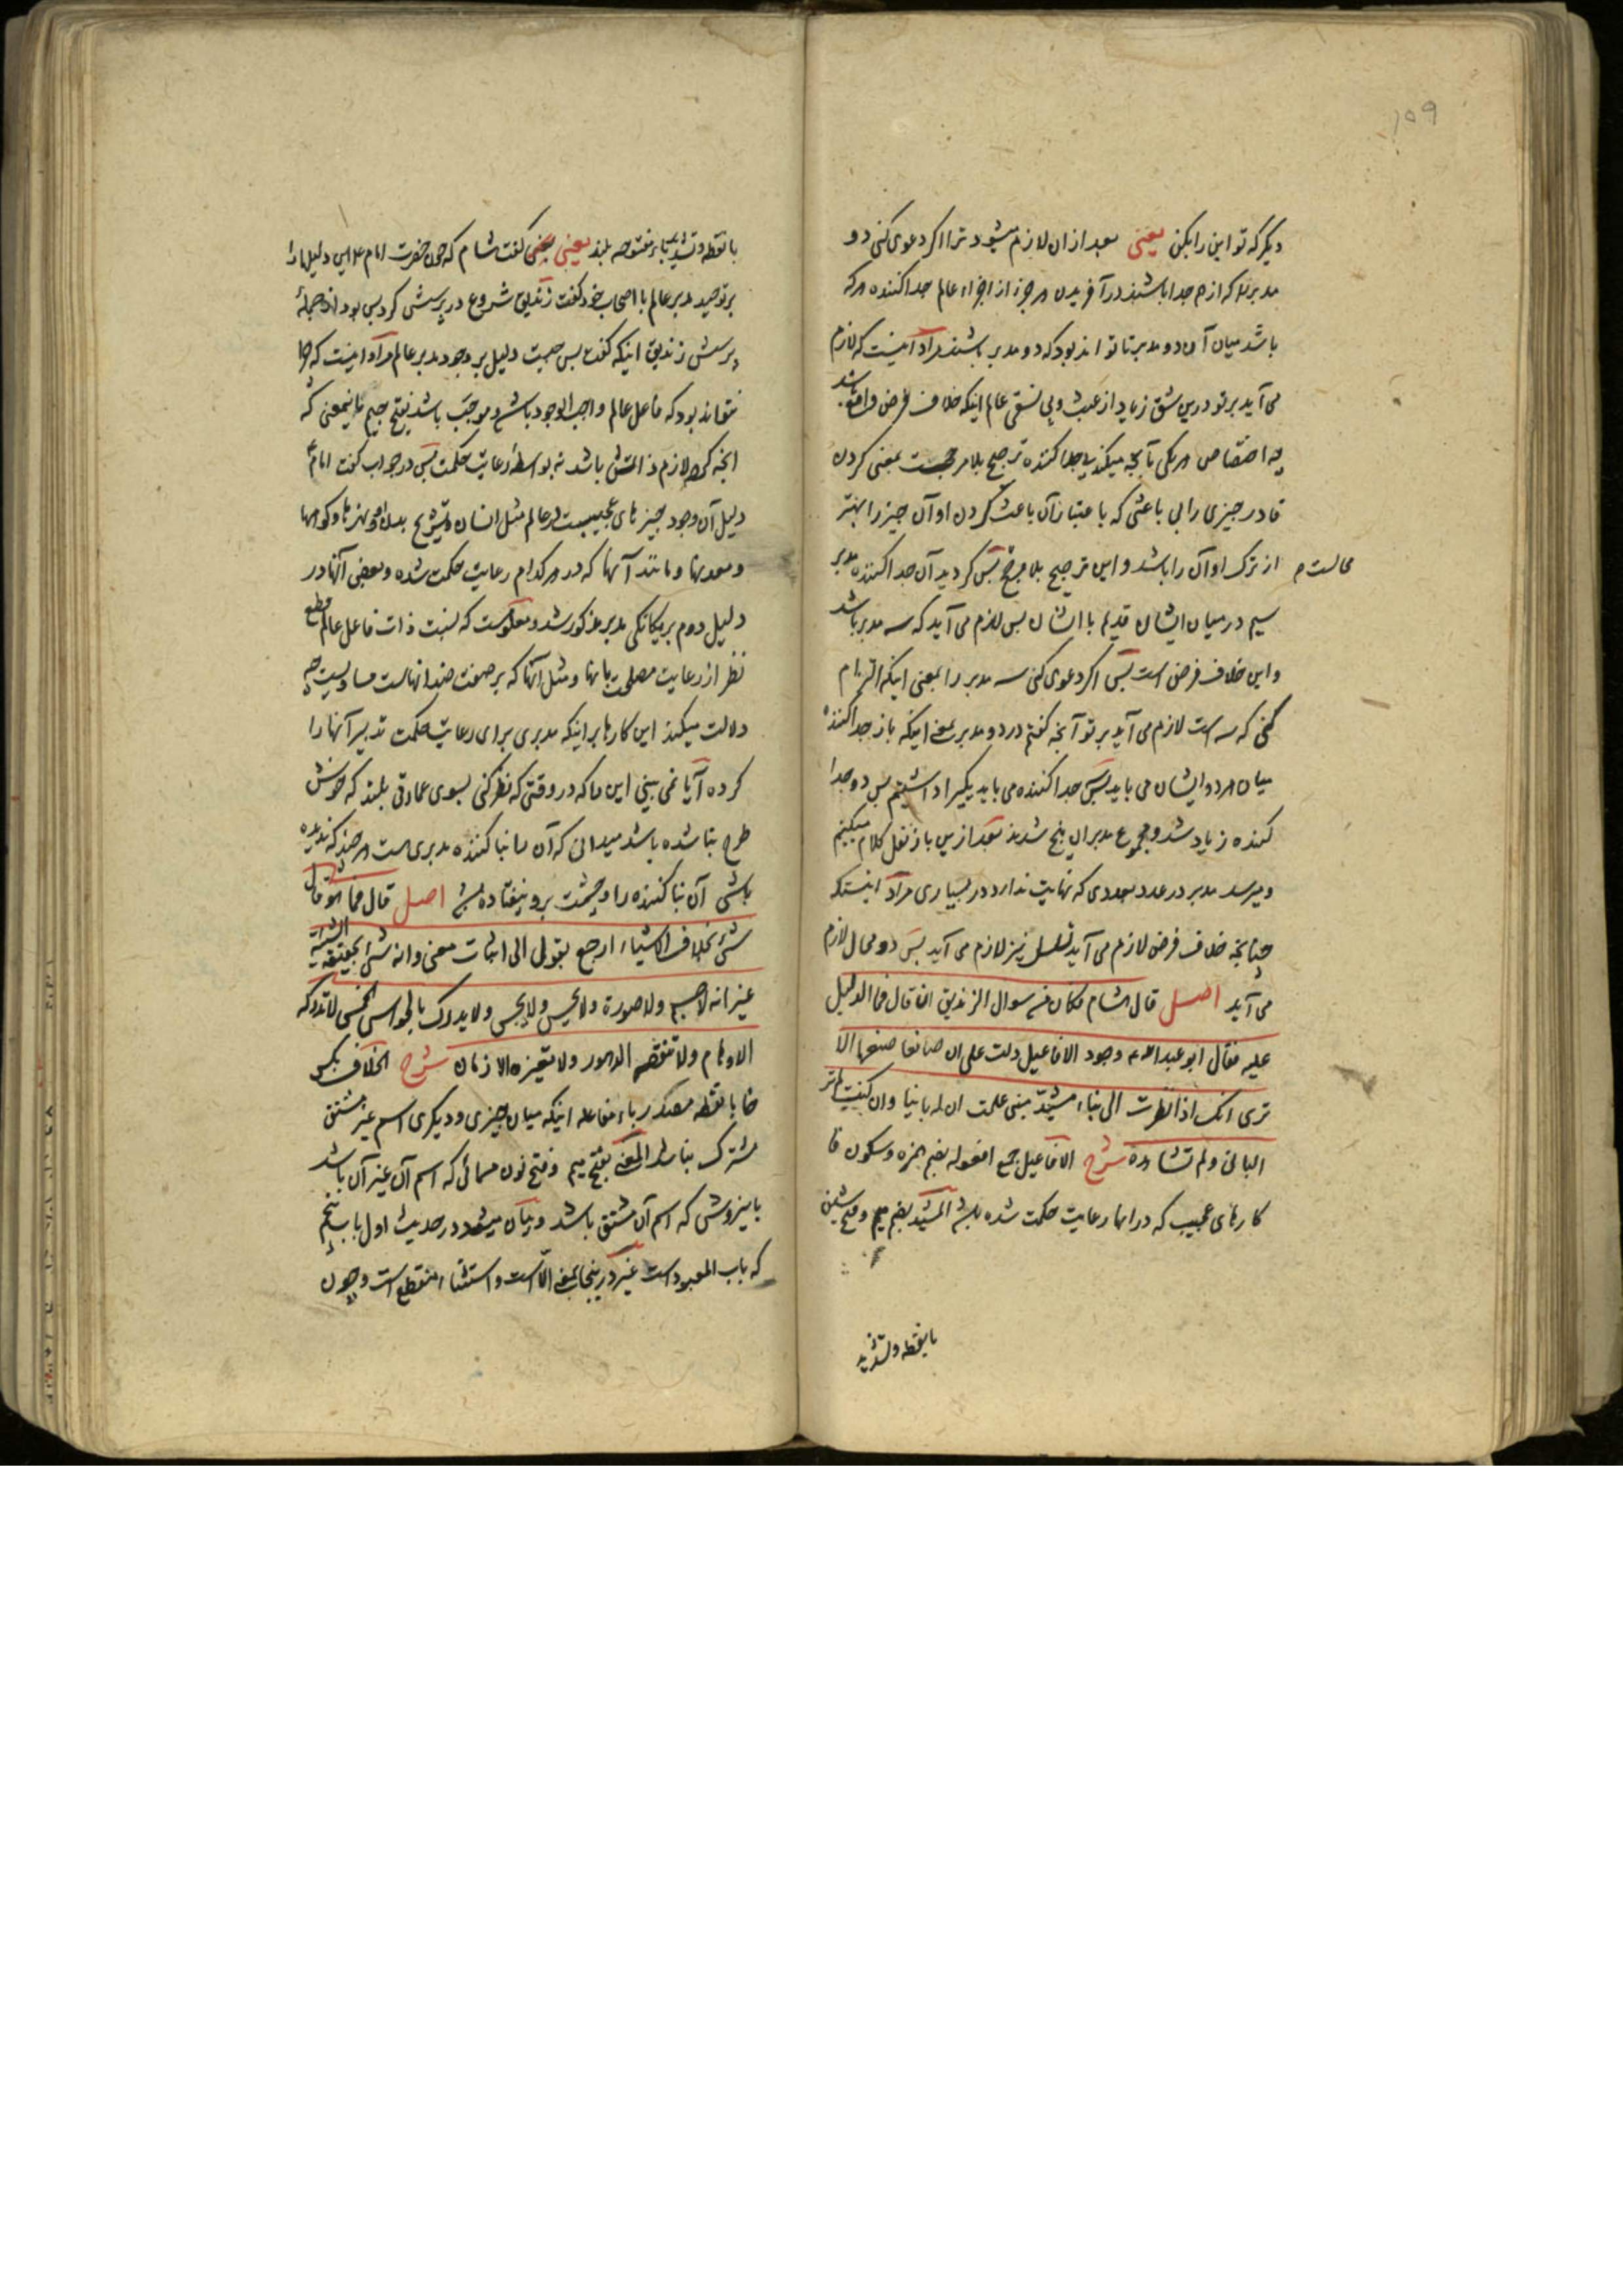 ۱۵۹
دیکر که تو این را بکن یعنی بعد از ان لازم میشود ترا اکر دعوی کنی دو
مدبر را که از هم جدا باشند در آفریدن هر جزء از اجزاء عالم جدا کننده هر که
باشد میان آن دو مدبر تا تواند بود که دو مدبر باشند مراد اینست که لازم
می آید بر تو درین شق زیاد از عبث و بی نسقی عالم اینکه خلاف فرض واقع باشد
چه اختصاص هر یکی بآنچه میکند بی جدا کننده ترجیح بلا مرجحست بمعنی کردن
قادر چیزی را بی باعثی که باعتبار آن باعث کردن او آن چیز را بهتر
از ترک او آن را باشد و این ترجیح بلا مرجح محالست پس کردید آن جدا کننده مدبر
سیم در میان ایشان قدیم با ایشان پس لازم می آید که سه مدبر باشد
و این خلاف فرض است پس اکر دعوی کنی سه مدبر را بمعنی اینکه التزام
کنی که سه است لازم می آید بر تو آنچه کفتم در دو مدبر بمعنی اینکه باز جدا کننده
میان هر دو ایشان می باید پس جدا کننده می باید یکی را داشتیم پس دو جدا
کننده زیاد شد و مجموع مدبران پنج شدند بعد ازین باز نقل کلام میکنیم
و میرسد مدبر در عدد بعددی که نهایت ندارد در بسیاری مراد اینستکه
چنانچه خلاف فرض لازم می آید تسلسل نیز لازم می آید پس دو محال لازم
می آید اصل قال هشام فکان من سوال الزندیق ان قال فما الدلیل
علیه فقال ابو عبدالله ع وجود الافاعیل دلت علی ان صانعا صنعها الا
تری انک اذا نظرت الی بناء مشید مبنی علمت ان له بانیا وان کنت لم تر
البانی ولم تشاهده شرح الافاعیل جمع افعوله بضم همزه و سکون فا
کارهای عجیب که در انها رعایت حکمت شده باشد المشید بضم میم و فتح شین
بانقطه و تشدید
بانقطه و تشدید یاء مفتوحه بلند یعنی کفت هشام که چون حضرت امام ع این دلیل را
بر توحید مدبر عالم با اصحاب خود کفت زندیق شروع در پرسش کرد پس بود از جملهٔ
پرسش زندیق اینکه کفت پس چیست دلیل بر وجود مدبر عالم مراد اینست که چرا
نتواند بود که فاعل عالم واجب الوجود باشد و موجب باشد بفتح جیم باینمعنی که
انچه کرده لازم ذاتش باشد نه بواسطهٔ رعایت حکمت پس در جواب کفت امام ع
دلیل آن وجود چیزهای عجیبست در عالم مثل انسان و تشریح بدن او و نهرها و کوهها
و معدنها و مانند آنها که در هر کدام رعایت حکمت شده و بعضی آنها در
دلیل دوم بر یکانکی مدبر مذکور شد و معلومست که نسبت ذات فاعل عالم قطع
نظر از رعایت مصلحت بانها و مثل آنها که بر صفت ضد انهاست مساویست چه
دلالت میکند این کارها بر اینکه مدبری برای رعایت حکمت تدبیر آنها را
کرده آیا نمی بینی این را که در وقتی که نظر کنی بسوی عمارتی بلند که خوش
طرح بنا شده باشد میدانی که آن را بنا کننده مدبری هست هر چند که ندیده
باشی آن بنا کننده را و چشمت برو نیفتاده باشد اصل قال فما هو قال
شئ بخلاف الاشیاء ارجع بقولی الی اثبات معنی وانه شئ بحقیقة الشیئیة
غیر انه لا جسم ولا صورة ولا یحس ولا یجس ولا یدرک بالحواس الخمس لا تدرکه
الاوهام ولا تنقصه الدهور ولا تغیره الازمان شرح الخلاف بکسر
خا بانقطه مصدر باب مفاعله اینکه میان چیزی و دیکری اسم غیر مشتق
مشترک نباشد المعنی بفتح میم و فتح نون مسمائی که اسم آن غیر آن باشد
باینروش که اسم آن مشتق باشد و بیان میشود در حدیث اول باب پنجم
که باب المعبود است غیر درینجا بمعنی الا است و استثناء منقطع است و چون